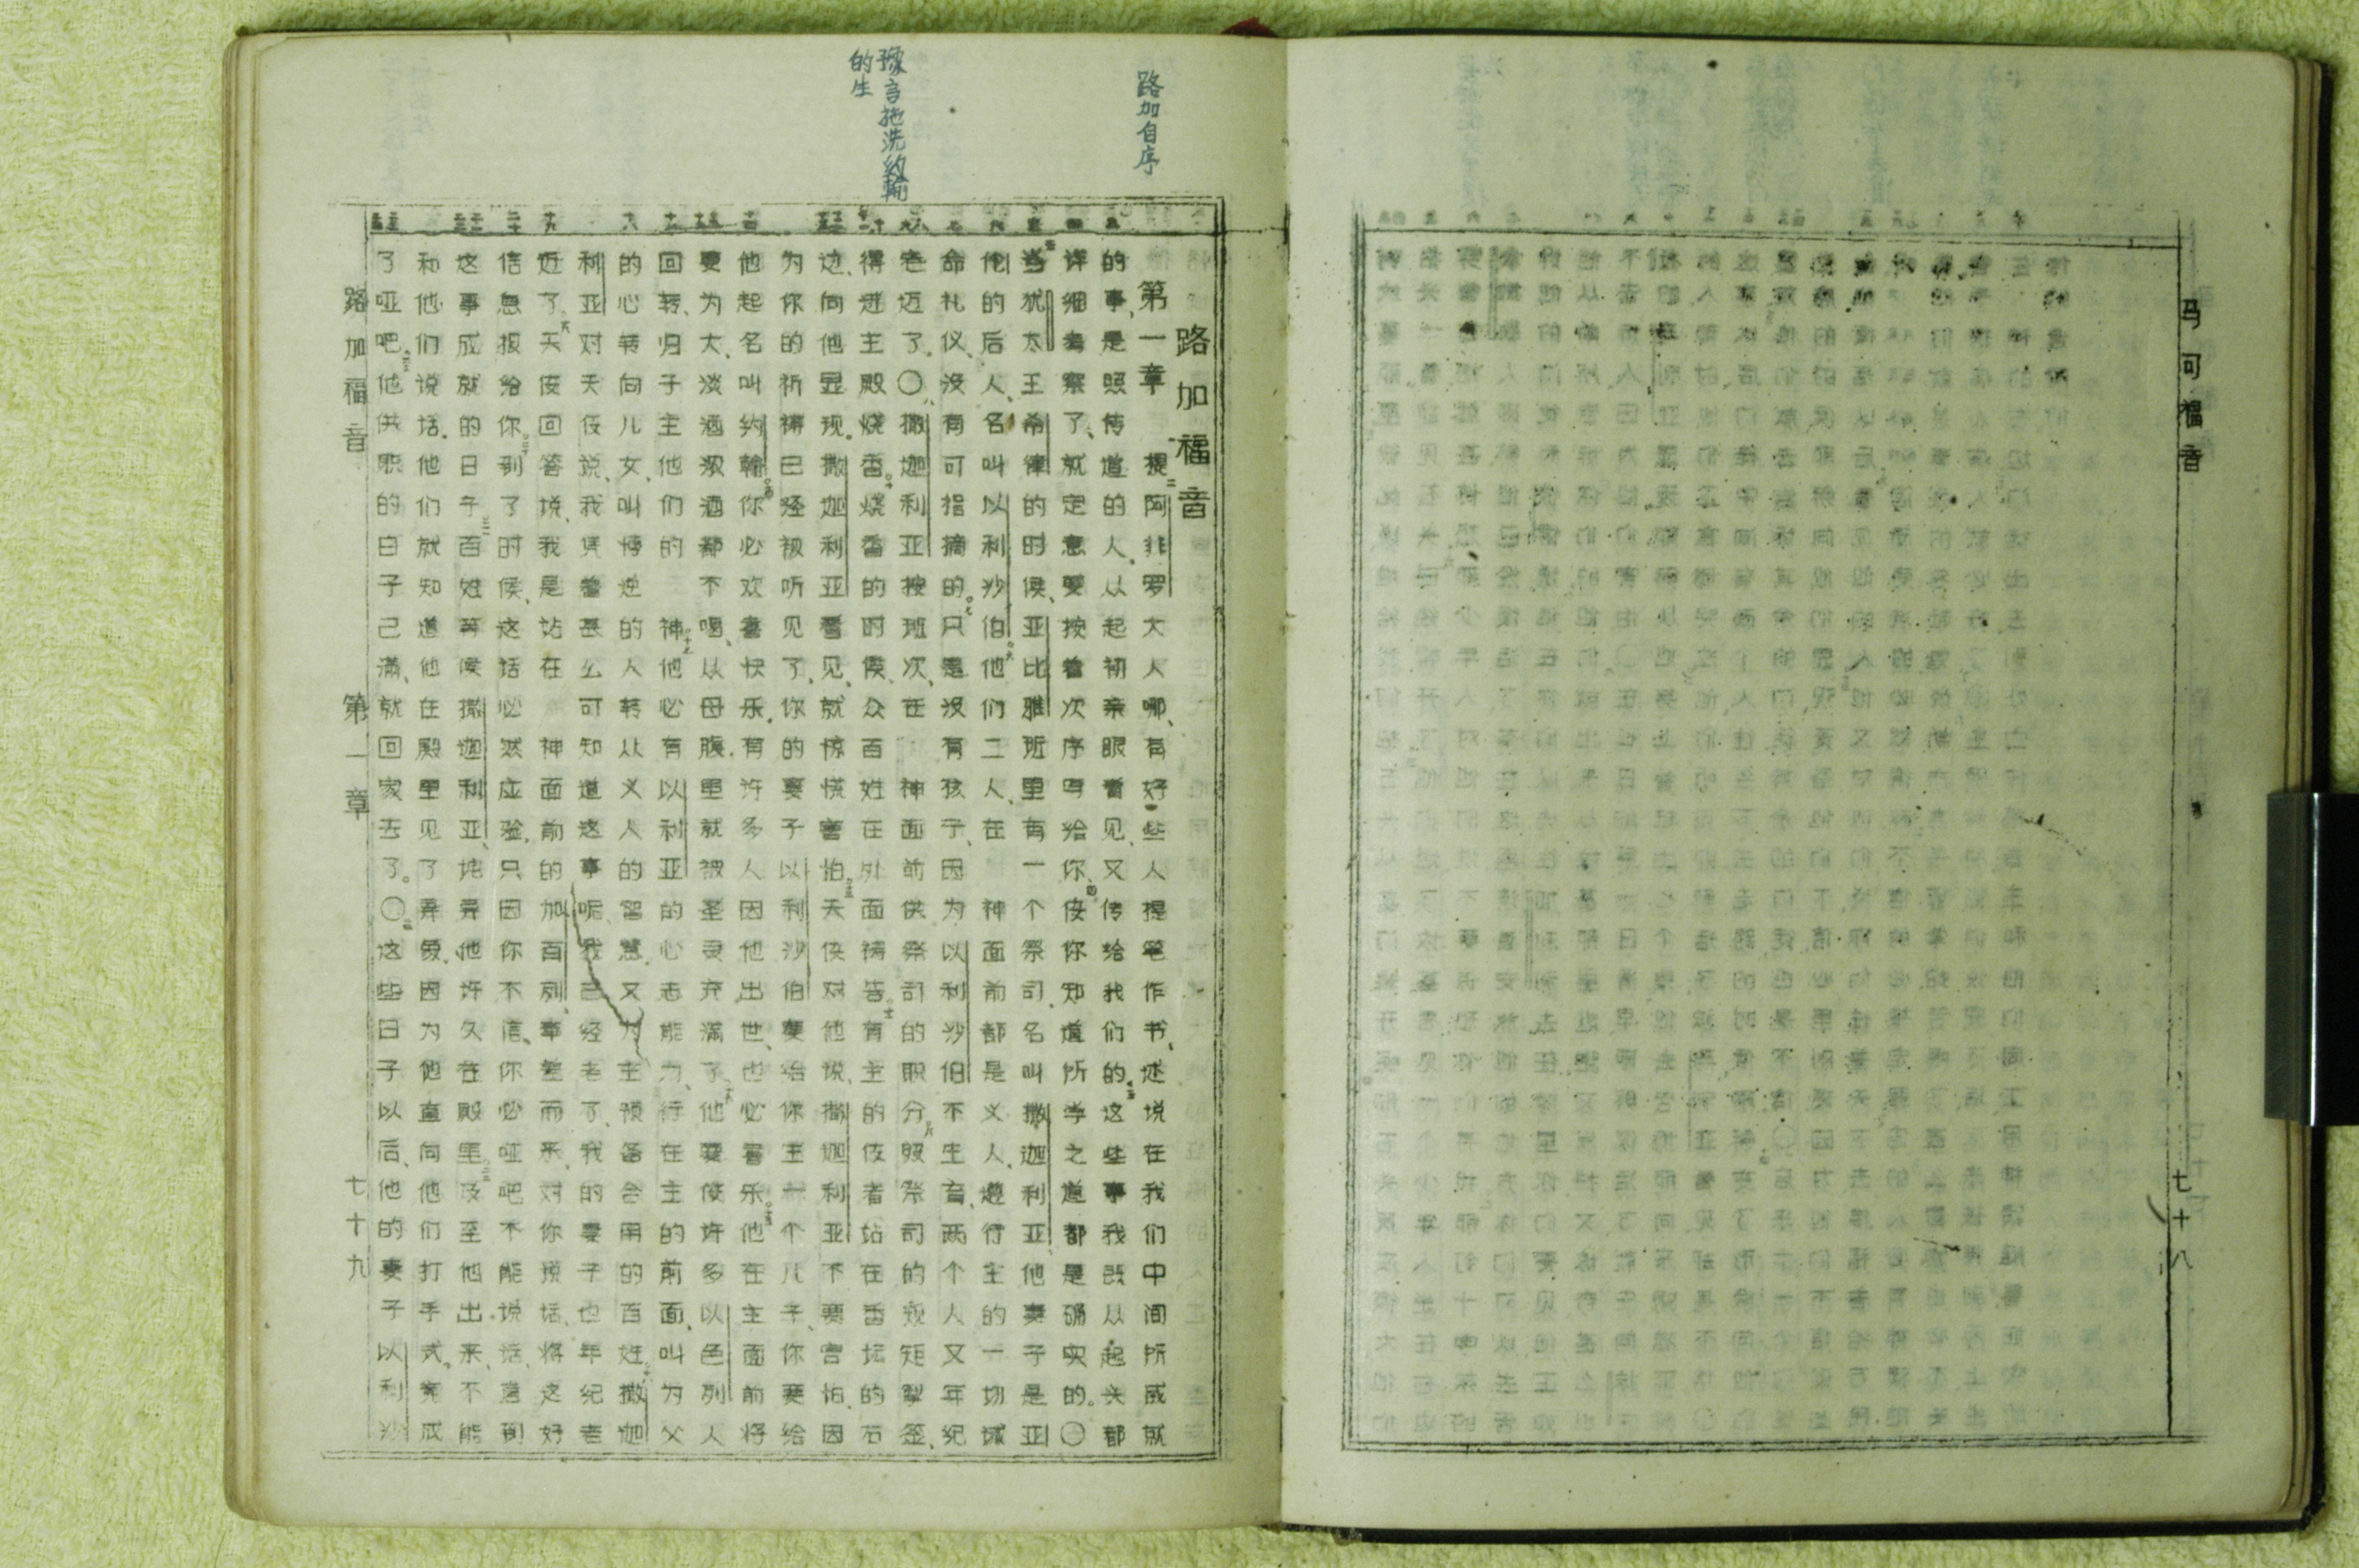 马可福音 七十八
路加自序
豫言施洗約翰
的生
路加福音
第一章 提阿非罗大人哪、有好些人提笔作书、述说在我们中间所成就
的事、是照传道的人、从起初亲眼看见、又传给我们的、这些事我既从起头都
详细考察了、就定意要按着次序写给你、使你知道所学之道都是确实的。〇
当犹太王希律的时候、亚比雅班里有一个祭司、名叫撒迦利亚、他妻子是亚
伦的后人、名叫以利沙伯。他们二人、在 神面前都是义人、遵行主的一切诫
命礼仪、没有可指摘的。只是没有孩子、因为以利沙伯不生育、两个人又年纪
老迈了。〇撒迦利亚按班次、在 神面前供祭司的职分、照祭司的规矩掣签、
得进主殿烧香。烧香的时候、众百姓在外面祷告。有主的使者站在香坛的右
边、向他显现。撒迦利亚看见、就惊慌害怕。天使对他说、撒迦利亚、不要害怕、因
为你的祈祷已经被听见了、你的妻子以利沙伯要给你生一个儿子、你要给
他起名叫约翰。你必欢喜快乐．有许多人因他出世、也必喜乐。他在主面前将
要为大、淡酒浓酒都不喝、从母腹里就被圣灵充满了。他要使许多以色列人
回转、归于主他们的 神。他必有以利亚的心志能力、行在主的前面、叫为父
的心转向儿女、叫悖逆的人转从义人的智慧．又为主预备合用的百姓。撒迦
利亚对天使说、我凭着甚么可知道这事呢、我已经老了、我的妻子也年纪老
迈了。天使回答说、我是站在 神面前的加百列、奉差而来、对你说话、将这好
信息报给你。到了时候、这话必然应验、只因你不信、你必哑吧不能说话、直到
这事成就的日子。百姓等候撒迦利亚、诧异他许久在殿里。及至他出来、不能
和他们说话．他们就知道他在殿里见了异象、因为他直向他们打手式。竟成
了哑吧。他供职的日子已满、就回家去了。〇这些日子以后、他的妻子以利沙
路加福音 第一章 七十九